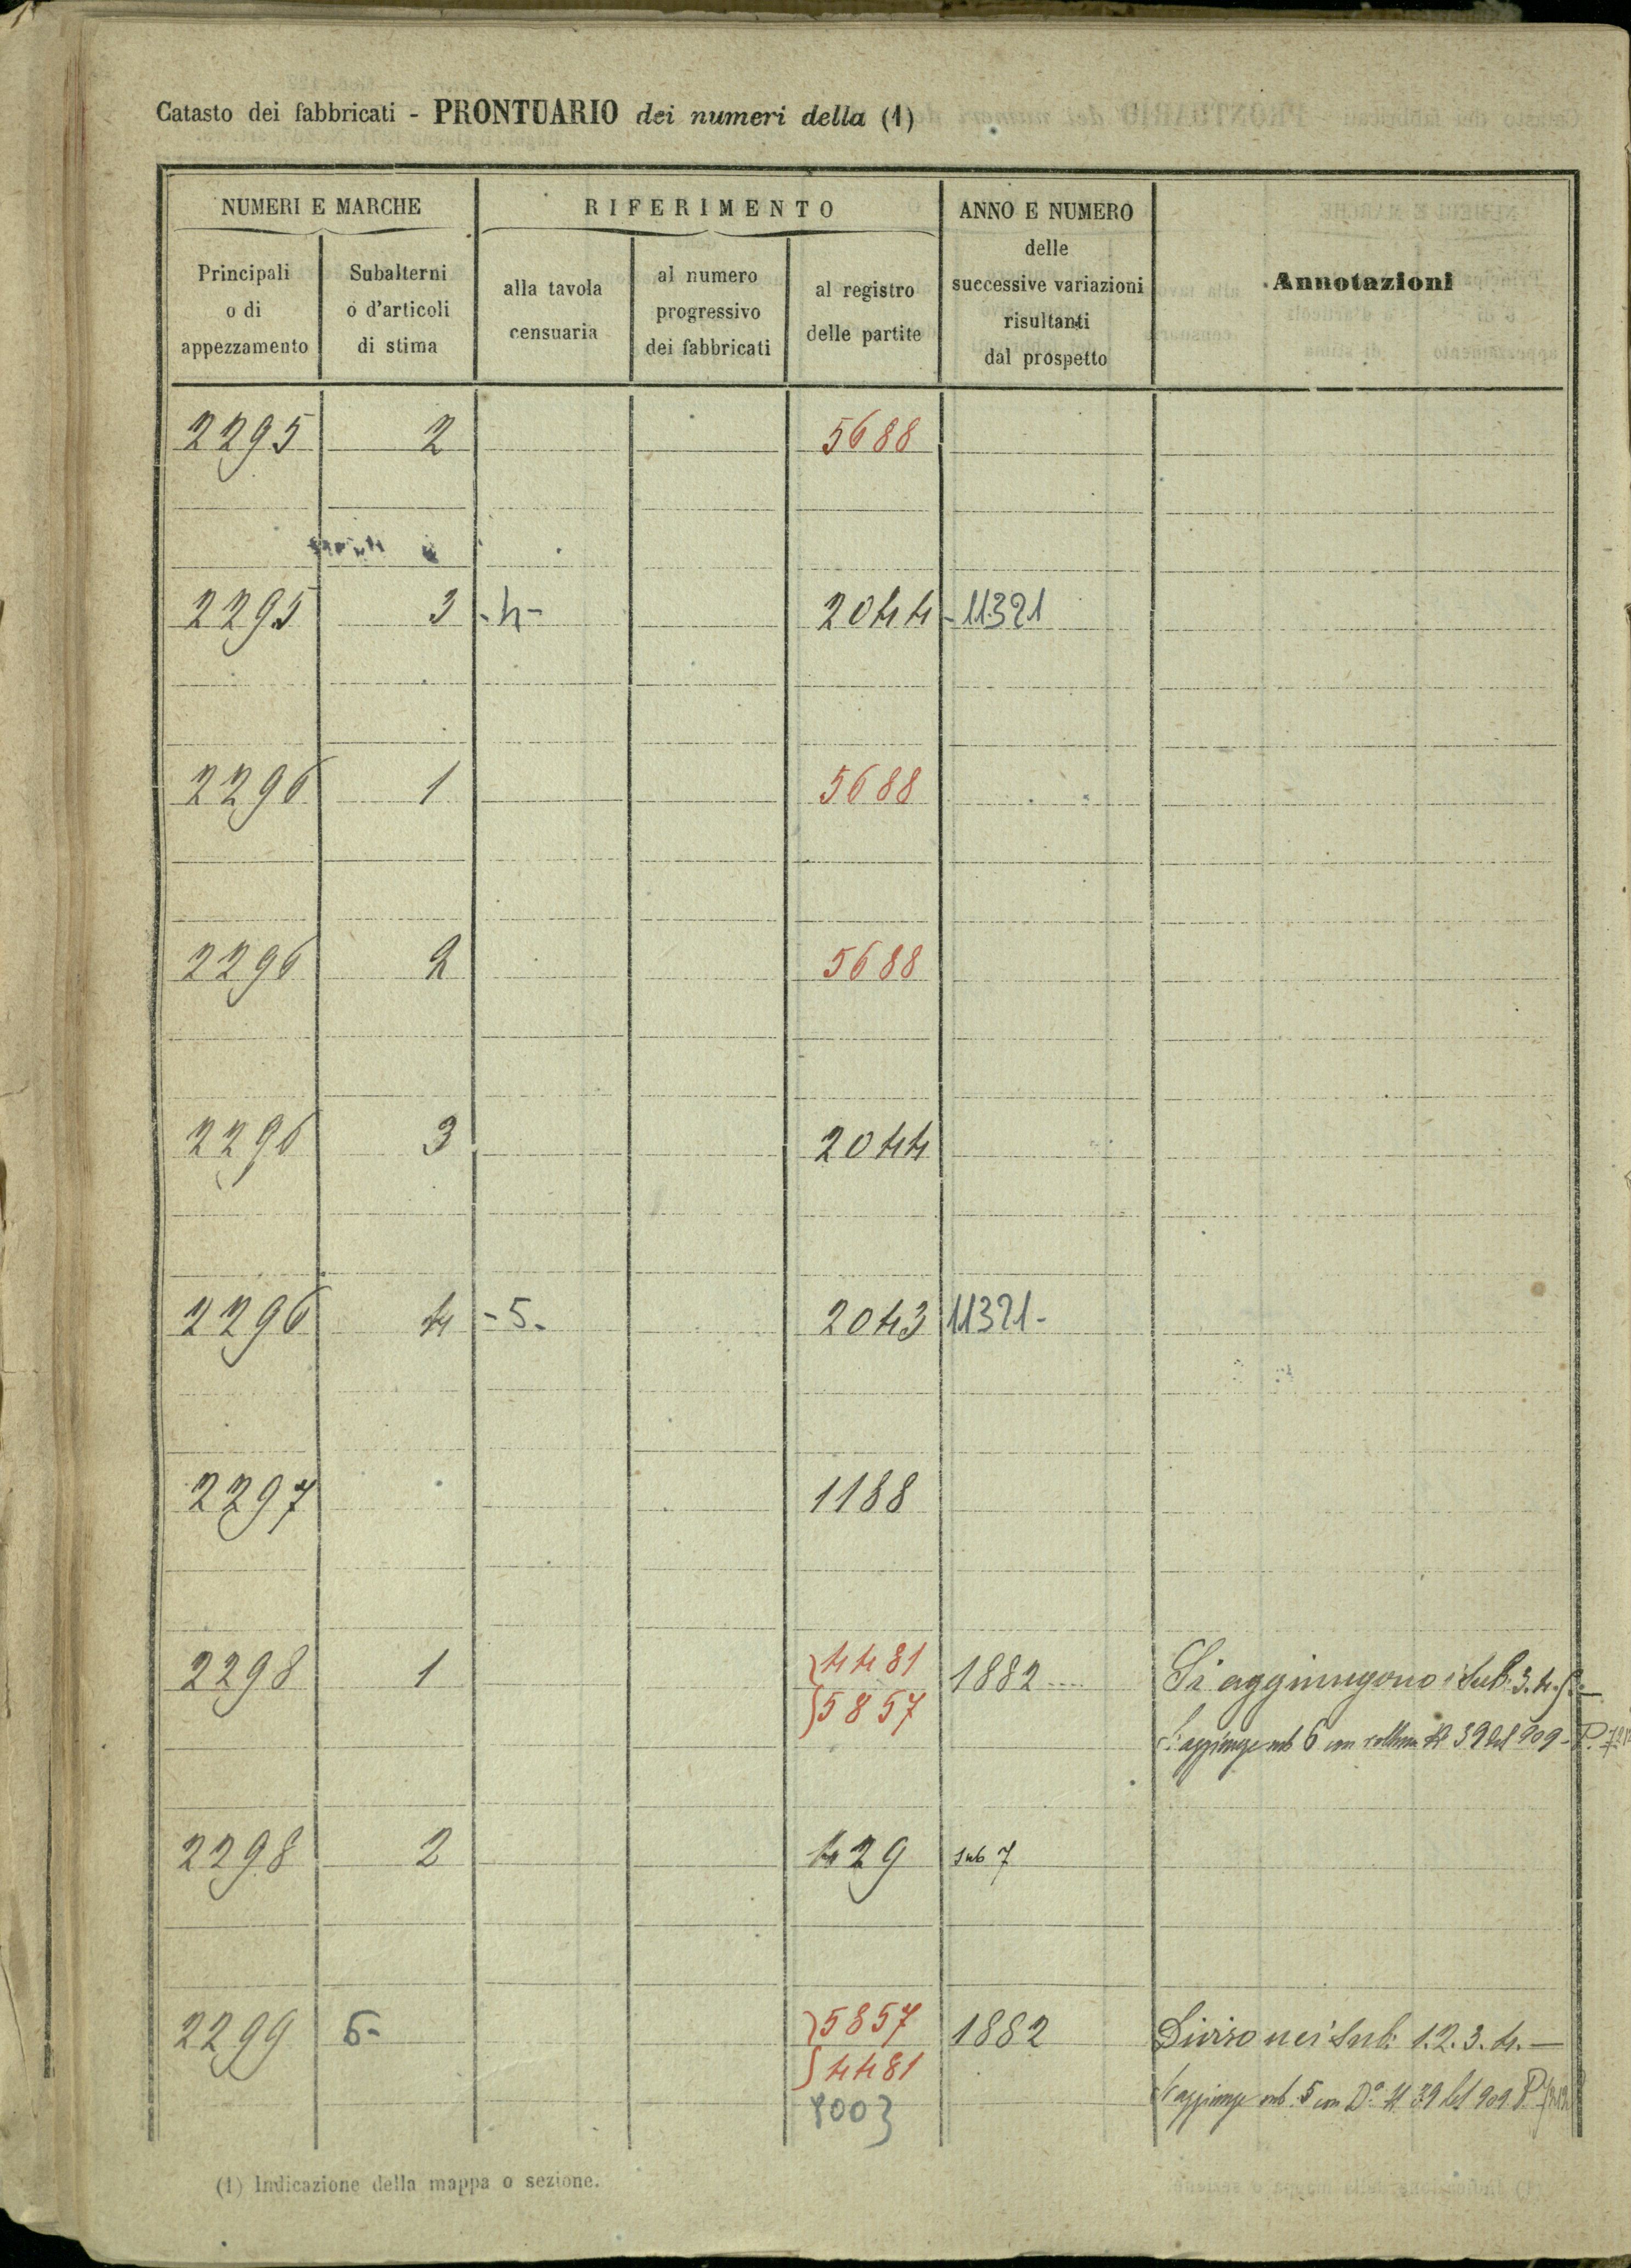 Catasto dei fabbricati - PRONTUARIO dei numeri della (1)
NUMERI E MARCHE
RIFERIMENTO
ANNO E NUMERO
delle
successive variazioni
risultanti
dal prospetto
Annotazioni
Principali
o di
appezzamento
Subalterni
o d'articoli
di stima
alla tavola
censuaria
al numero
progressivo
dei fabbricati
al registro
delle partite
2295 2 5688
2295 3 -4- 2044 -11321
2296 1 5688
2296 2 5688
2296 3 2044
2296 4 -5- 2043 11321-
2297 1188
2298 1 4481 1882 Si aggiungono i Sub. 3.4.5.-
5857
Si aggiunge sub 6 con 39 del 909 - P.
2298 2 429 sub 7
2299 5- 5857 1882 Diviso nei Sub: 1.2.3.4.-
4481
Si aggiunge sub. 5 con D° 39 del 909 P.
8003
(1) Indicazione della mappa o sezione.